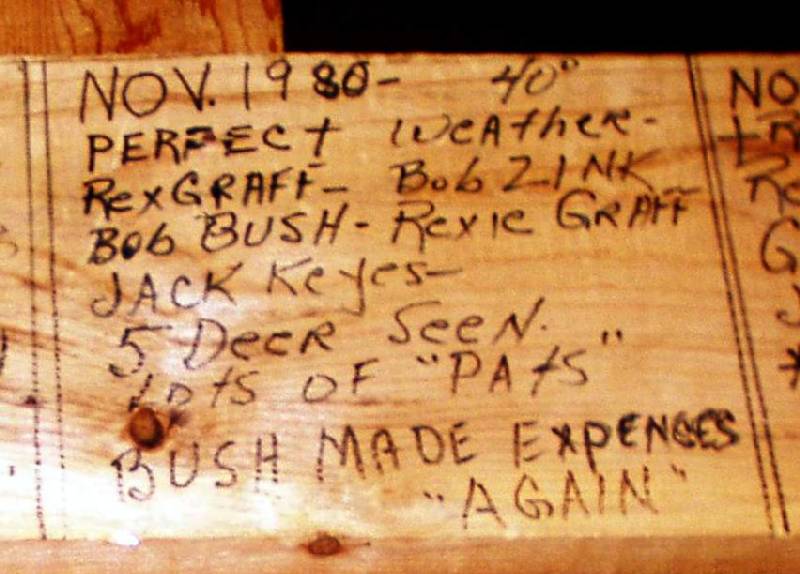 NOV. 1980- 40°
PERFECT WEATHER-
REX GRAFF- BOB ZINK
BOB BUSH- REXIE GRAFF
JACK KEYES-
5 DEER SEEN.
LOTS OF "PATS"
BUSH MADE EXPENSES
"AGAIN"
NO